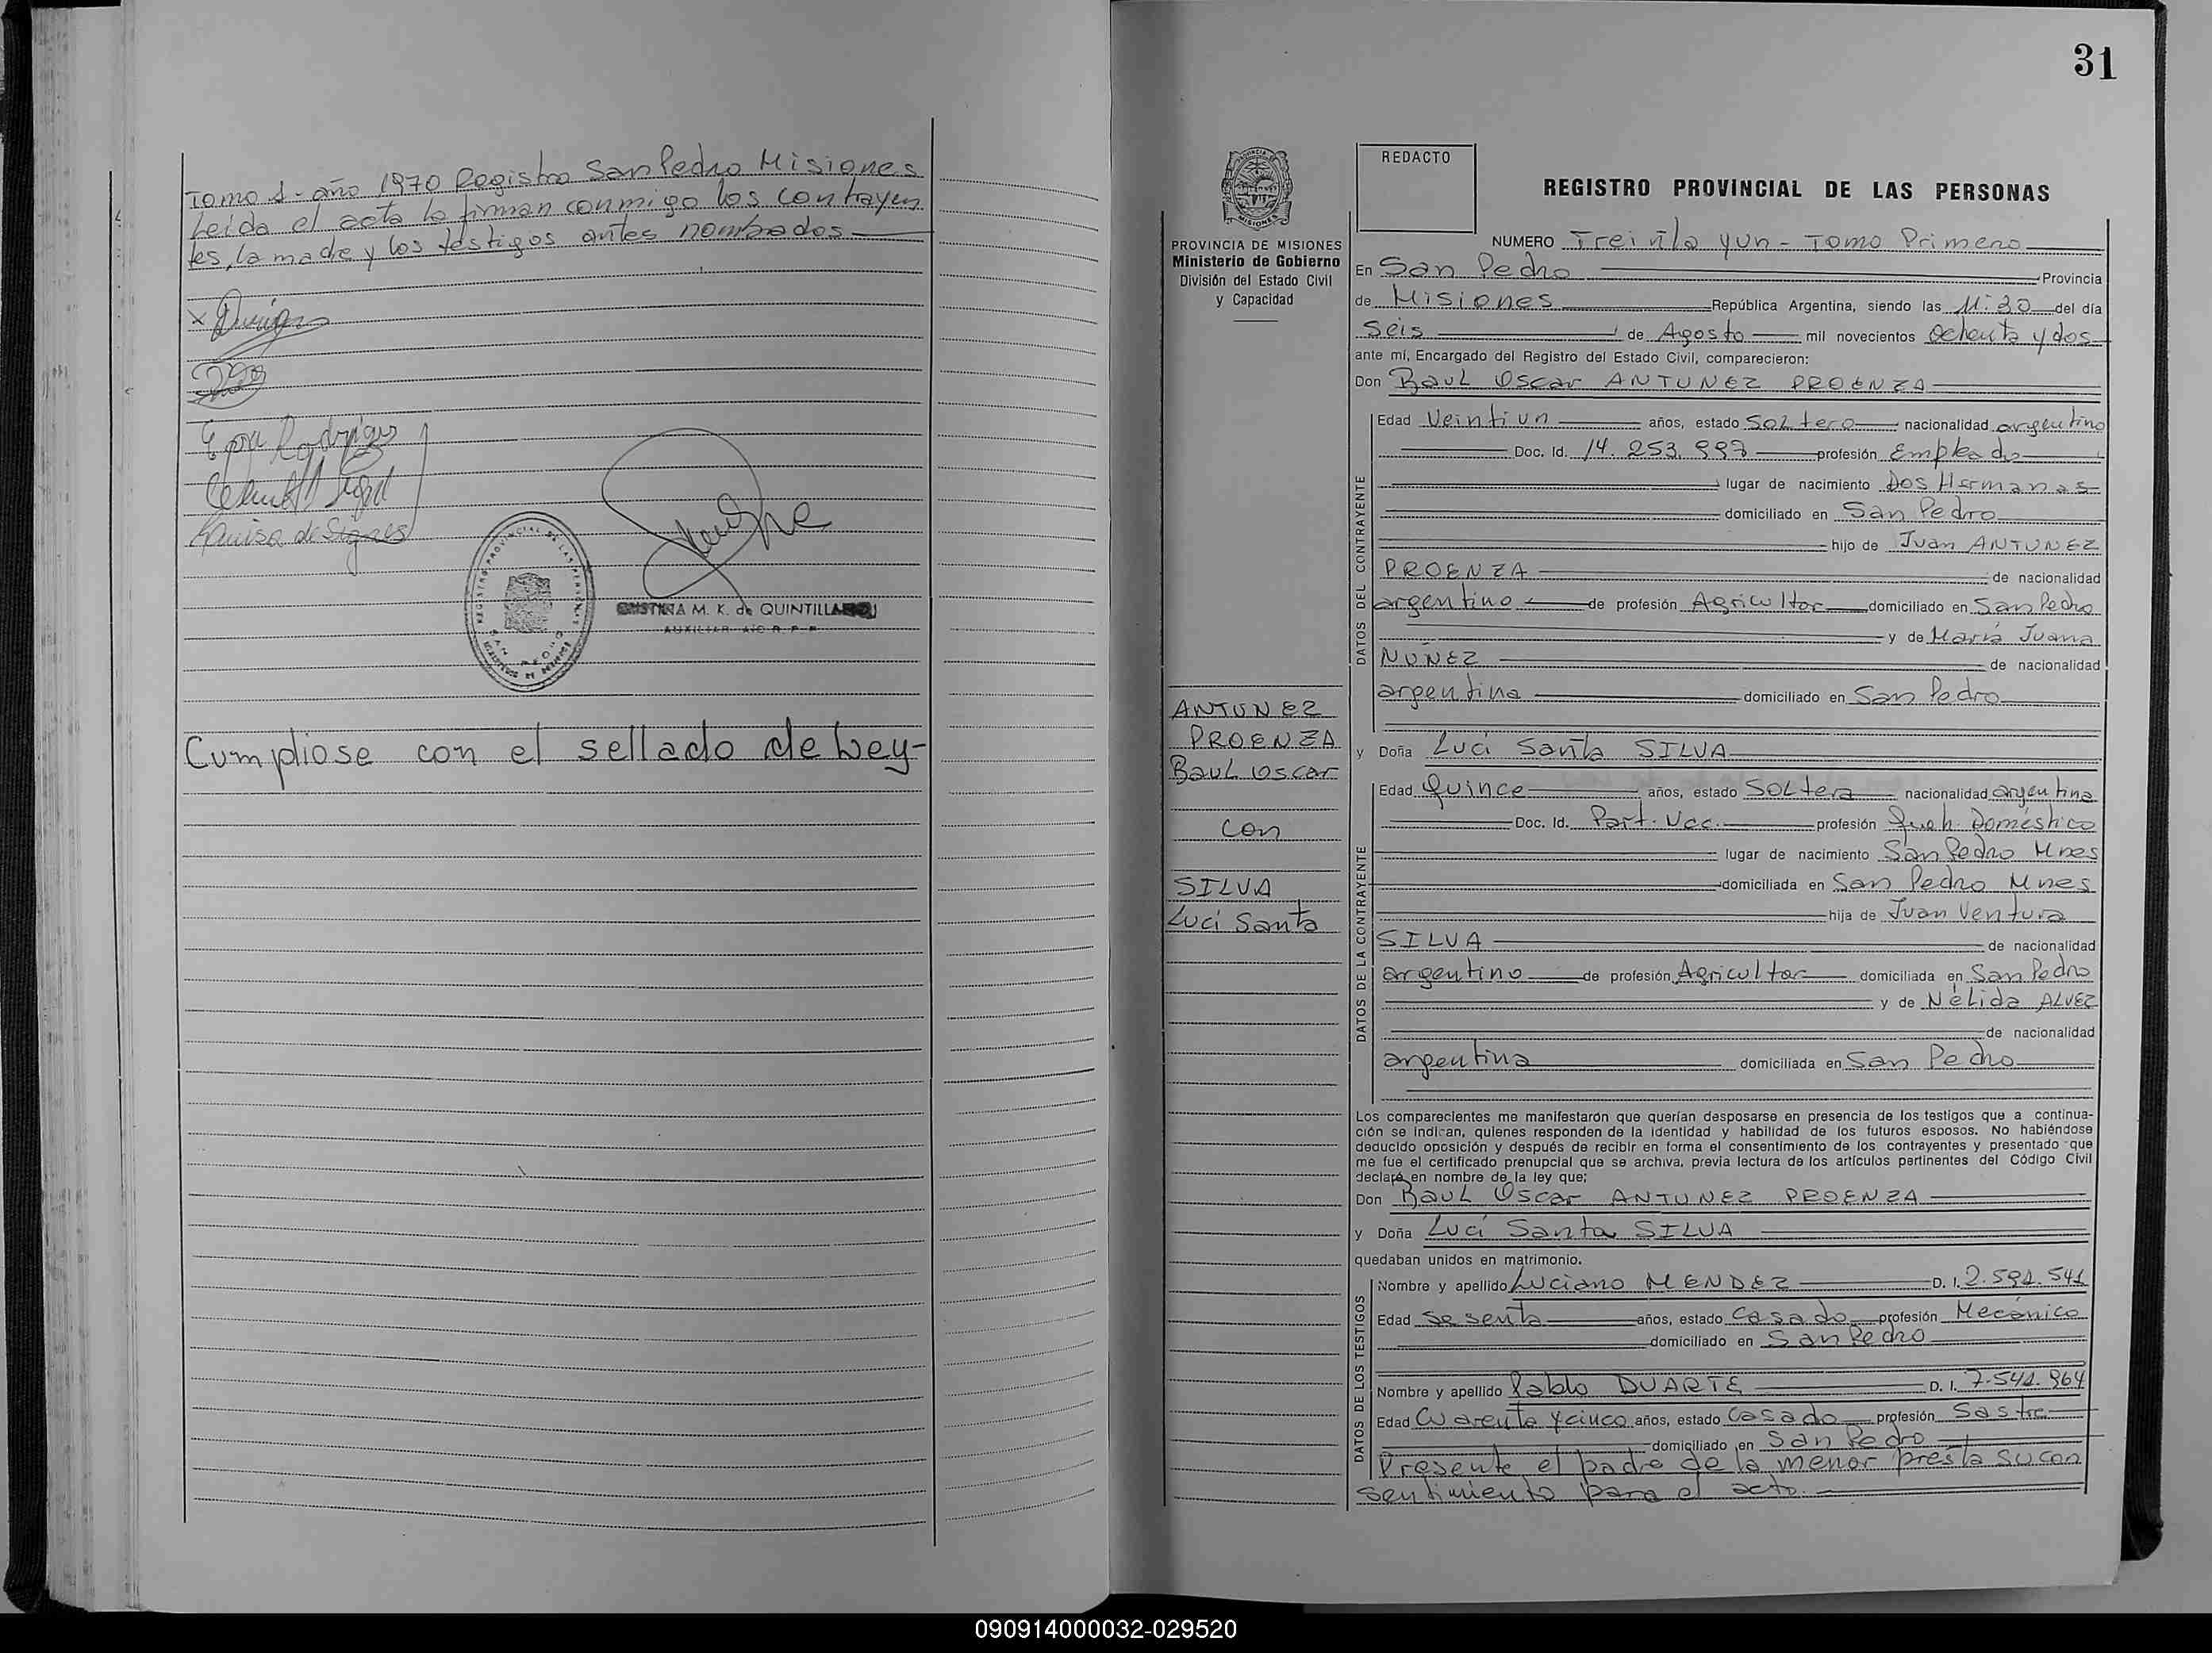 Tomo 1 - año 1970 Registro San Pedro Misiones
Leida el acta la firman conmigo los contrayen
tes, la madre y los testigos antes nombrados
x
Rodriguez
Luisa de
REGISTRO PROVINCIAL DE LAS PERSONAS
SAN PEDRO
CRISTINA M. K. de QUINTILLAN
AUXILIAR
Cumpliose con el sellado de Ley-
31
PROVINCIA DE MISIONES
Ministerio de Gobierno
División del Estado Civil
y Capacidad
ANTUNEZ
PROENZA
Raul Oscar
con
SILVA
Luci Santa
REDACTO
REGISTRO PROVINCIAL DE LAS PERSONAS
NUMERO Treinta y un - Tomo Primero
En San Pedro Provincia
de Misiones República Argentina, siendo las 11:30 del día
Seis de Agosto mil novecientos Ochenta y dos
ante mí, Encargado del Registro del Estado Civil, comparecieron:
Don Raul Oscar ANTUNEZ PROENZA
DATOS DEL CONTRAYENTE
Edad Veintiun años, estado Soltero nacionalidad argentino
Doc. Id. 14.253.997 profesión Empleado
lugar de nacimiento Dos Hermanas
domiciliado en San Pedro
hijo de Juan ANTUNEZ
PROENZA de nacionalidad
argentino de profesión Agricultor domiciliado en San Pedro
y de María Juana
NUÑEZ de nacionalidad
argentina domiciliado en San Pedro
y Doña Luci Santa SILVA
DATOS DE LA CONTRAYENTE
Edad Quince años, estado Soltera nacionalidad argentina
Doc. Id. Part. Nac. profesión Queh. Doméstico
lugar de nacimiento San Pedro Mnes
domiciliada en San Pedro Mnes
hija de Juan Ventura
SILVA de nacionalidad
argentino de profesión Agricultor domiciliada en San Pedro
y de Nélida ALVEZ
de nacionalidad
argentina domiciliada en San Pedro
Los comparecientes me manifestarón que querían desposarse en presencia de los testigos que a continua-
ción se indican, quienes responden de la identidad y habilidad de los futuros esposos. No habiéndose
deducido oposición y después de recibir en forma el consentimiento de los contrayentes y presentado que
me fue el certificado prenupcial que se archiva, previa lectura de los artículos pertinentes del Código Civil
declaré en nombre de la ley que;
Don Raul Oscar ANTUNEZ PROENZA
y Doña Luci Santa SILVA
quedaban unidos en matrimonio.
DATOS DE LOS TESTIGOS
Nombre y apellido Luciano MENDEZ D. I. 2.591.541
Edad Sesenta años, estado Casado profesión Mecánico
domiciliado en San Pedro
Nombre y apellido Pablo DUARTE D. I. 7.541.964
Edad Cuarenta y cinco años, estado Casado profesión Sastre
domiciliado en San Pedro
Presente el padre de la menor presta su con
sentimiento para el acto.
090914000032-029520